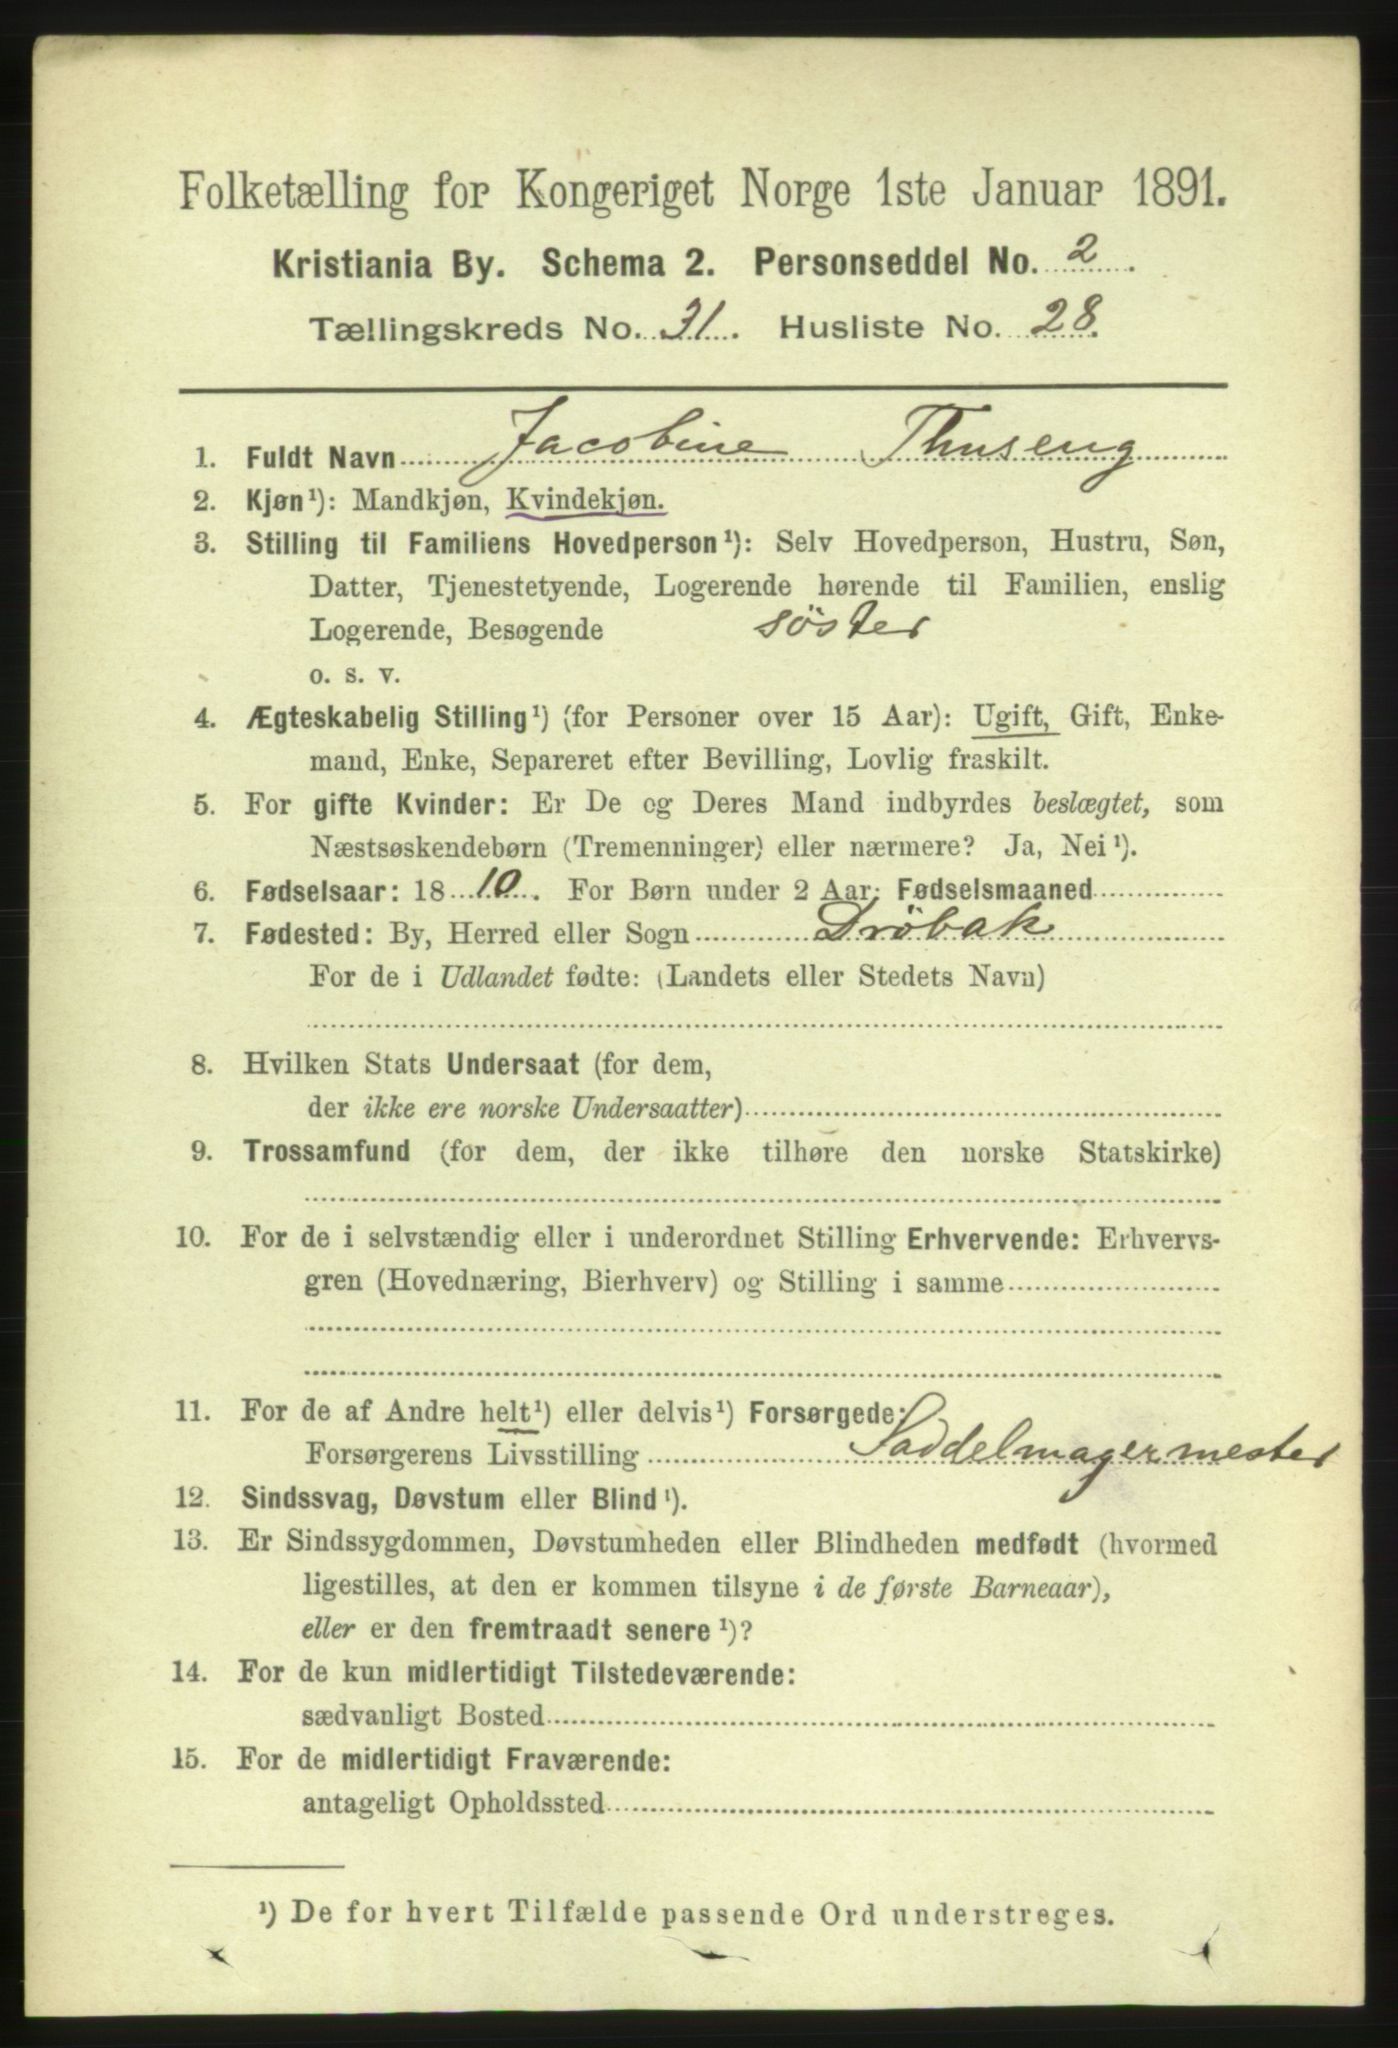 Folketælling for Kongeriget Norge 1ste Januar 1891.
Kristiania By. Schema 2. Personseddel No. 2.
Tællingskreds No. 31. Husliste No. 28.
1. Fuldt Navn Jacobine Thuseng
2. Kjøn¹): Mandkjøn, Kvindekjøn.
3. Stilling til Familiens Hovedperson¹): Selv Hovedperson, Hustru, Søn,
Datter, Tjenestetyende, Logerende hørende til Familien, enslig
Logerende, Besøgende søster
o. s. v.
4. Ægteskabelig Stilling¹) (for Personer over 15 Aar): Ugift, Gift, Enke-
mand, Enke, Separeret efter Bevilling, Lovlig fraskilt.
5. For gifte Kvinder: Er De og Deres Mand indbyrdes beslægtet, som
Næstsøskendebørn (Tremenninger) eller nærmere? Ja, Nei¹).
6. Fødselsaar: 1810. For Børn under 2 Aar: Fødselsmaaned
7. Fødested: By, Herred eller Sogn Drøbak
For de i Udlandet fødte: (Landets eller Stedets Navn)
8. Hvilken Stats Undersaat (for dem,
der ikke ere norske Undersaatter)
9. Trossamfund (for dem, der ikke tilhøre den norske Statskirke)
10. For de i selvstændig eller i underordnet Stilling Erhvervende: Erhvervs-
gren (Hovednæring, Bierhverv) og Stilling i samme
11. For de af Andre helt¹) eller delvis¹) Forsørgede:
Forsørgerens Livsstilling Saddelmagermester
12. Sindssvag, Døvstum eller Blind¹).
13. Er Sindssygdommen, Døvstumheden eller Blindheden medfødt (hvormed
ligestilles, at den er kommen tilsyne i de første Barneaar),
eller er den fremtraadt senere¹)?
14. For de kun midlertidigt Tilstedeværende:
sædvanligt Bosted
15. For de midlertidigt Fraværende:
antageligt Opholdssted
¹) De for hvert Tilfælde passende Ord understreges.